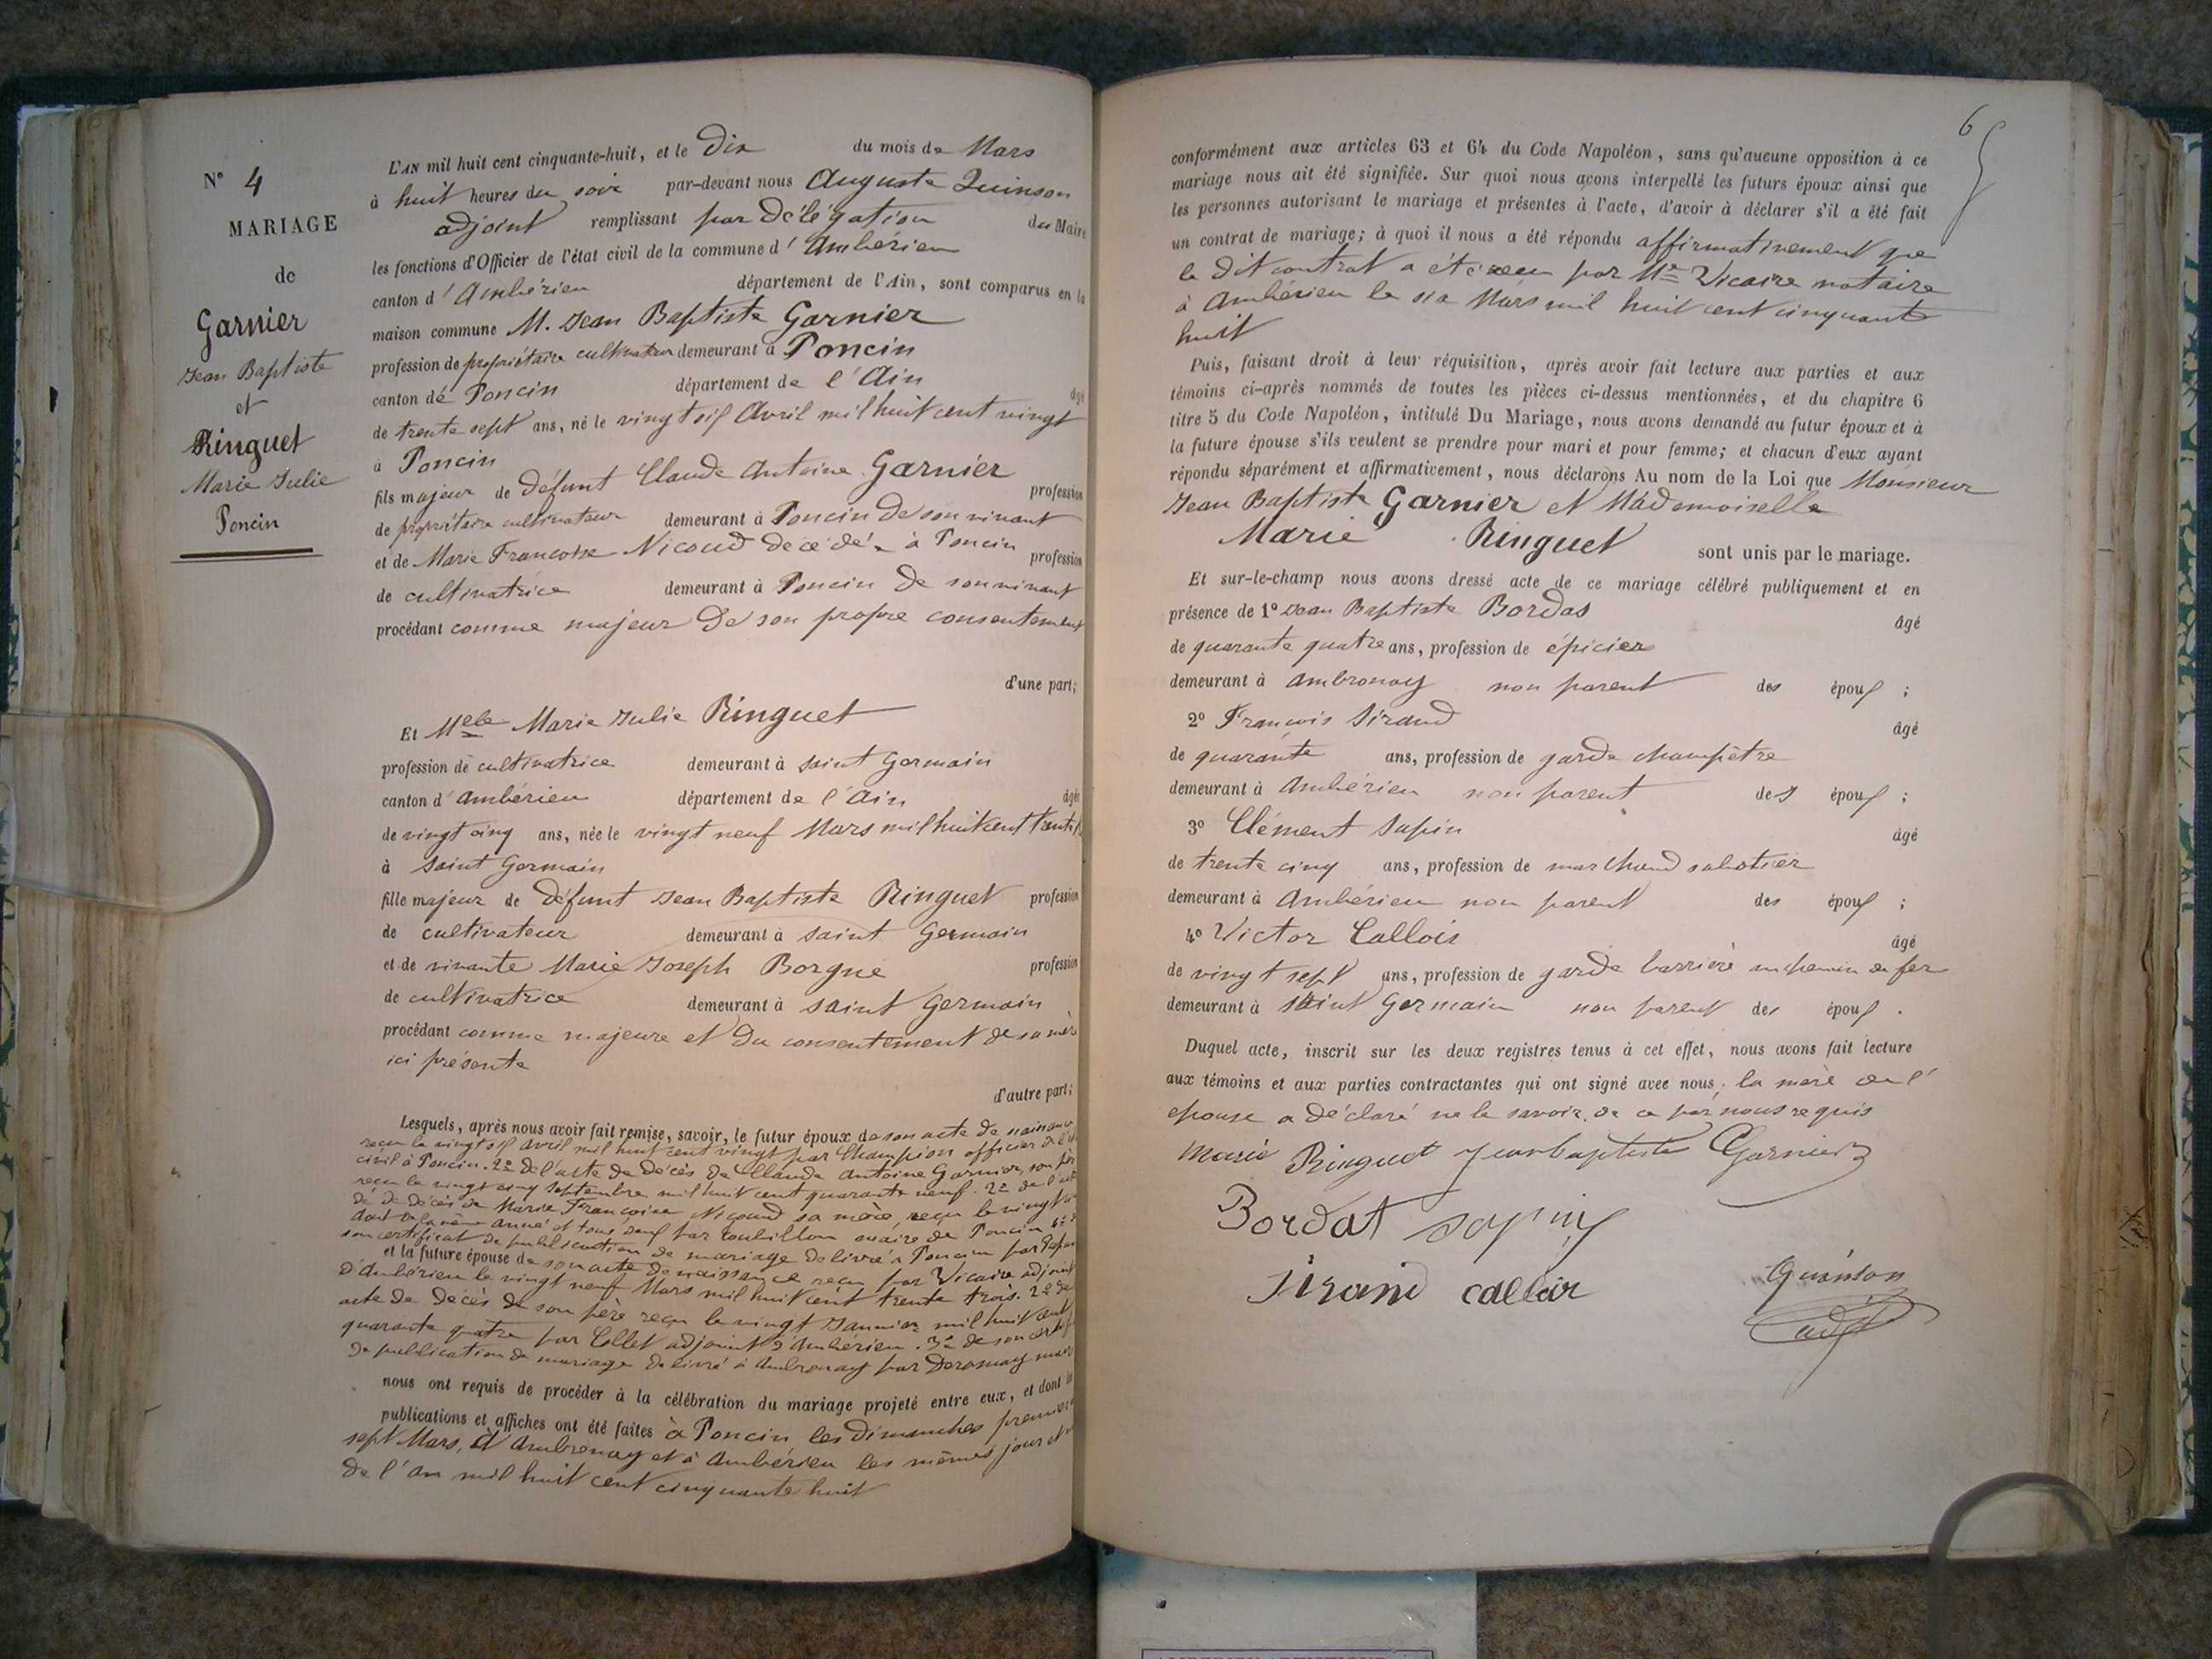 N° 4
MARIAGE
de
Garnier
Jean Baptiste
et
Ringuet
Marie Julie
Poncin
L'AN mil huit cent cinquante-huit, et le Dix du mois de Mars
à huit heures du soir par-devant nous Auguste Quinson
adjoint remplissant par Délégation du Maire
les fonctions d'Officier de l'état civil de la commune d'Ambérieu
canton d'Ambérieu département de l'Ain, sont comparus en la
maison commune M. Jean Baptiste Garnier
profession de propriétaire cultivateur demeurant à Poncin
canton de Poncin département de l'Ain âgé
de trente sept ans, né le vingt six Avril mil huit cent vingt
à Poncin
fils majeur de défunt Claude Antoine Garnier profession
de propriétaire cultivateur demeurant à Poncin de son vivant
et de Marie Françoise Nicoud décédé à Poncin profession
de cultivatrice demeurant à Poncin de son vivant
procédant comme majeur de son propre consentement
d'une part;
Et Melle Marie Julie Ringuet
profession de cultivatrice demeurant à Saint Germain
canton d'Ambérieu département de l'Ain âgée
de vingt cinq ans, née le vingt neuf Mars mil huit cent trente
à Saint Germain
fille majeur de défunt Jean Baptiste Ringuet profession
de cultivateur demeurant à Saint Germain
et de vivante Marie Joseph Borgne profession
de cultivatrice demeurant à Saint Germain
procédant comme majeure et du consentement de sa mère
ici présente
d'autre part;
Lesquels, après nous avoir fait remise, savoir, le futur époux de son acte de naissance
reçu le vingt six avril mil huit cent vingt par Champion officier de l'état
civil à Poncin. 2° de l'acte de décès de Claude Antoine Garnier, son père
reçu le vingt cinq septembre mil huit cent quarante neuf. 2° de l'acte
de décès de Marie Françoise Nicoud sa mère, reçu le vingt
Août de la même année et tous deux par maire de Poncin
son certificat de publication de mariage délivré à Poncin par
et la future épouse de son acte de naissance reçu par Vicaire adjoint
d'Ambérieu le vingt neuf Mars mil huit cent trente trois. 2° de
acte de décès de son père reçu le vingt Janvier mil huit cent
quarante quatre par Collet adjoint d'Ambérieu. 3° de son certif
de publication de mariage délivré à Ambronay par maire
nous ont requis de procéder à la célébration du mariage projeté entre eux, et dont les
publications et affiches ont été faites à Poncin les dimanches premier
sept Mars, à Ambronay et à Ambérieu les mêmes jours et
de l'an mil huit cent cinquante huit
6
conformément aux articles 63 et 64 du Code Napoléon, sans qu'aucune opposition à ce
mariage nous ait été signifiée. Sur quoi nous avons interpellé les futurs époux ainsi que
les personnes autorisant le mariage et présentes à l'acte, d'avoir à déclarer s'il a été fait
un contrat de mariage; à quoi il nous a été répondu affirmativement que
le dit contrat a été reçu par Me Vicaire notaire
à Ambérieu le six Mars mil huit cent cinquante
huit
Puis, faisant droit à leur réquisition, après avoir fait lecture aux parties et aux
témoins ci-après nommés de toutes les pièces ci-dessus mentionnées, et du chapitre 6
titre 5 du Code Napoléon, intitulé Du Mariage, nous avons demandé au futur époux et à
la future épouse s'ils veulent se prendre pour mari et pour femme; et chacun d'eux ayant
répondu séparément et affirmativement, nous déclarons Au nom de la Loi que Monsieur
Jean Baptiste Garnier et Mademoiselle
Marie Ringuet sont unis par le mariage.
Et sur-le-champ nous avons dressé acte de ce mariage célébré publiquement et en
présence de 1° Jean Baptiste Bordas âgé
de quarante quatre ans, profession de épicier
demeurant à Ambronay non parent des époux ;
2° François Sirand âgé
de quarante ans, profession de garde champêtre
demeurant à Ambérieu non parent des époux ;
3° Clément Sapin âgé
de trente cinq ans, profession de marchand sabotier
demeurant à Ambérieu non parent des époux ;
4° Victor Callois âgé
de vingt sept ans, profession de garde barrière au chemin de fer
demeurant à Saint Germain non parent des époux .
Duquel acte, inscrit sur les deux registres tenus à cet effet, nous avons fait lecture
aux témoins et aux parties contractantes qui ont signé avec nous. la mère de l'
épouse a déclaré ne le savoir, de ce par nous requis
Marie Ringuet jeanbaptiste Garnier
Bordat sapin
Sirand callois
Quinson
adjt